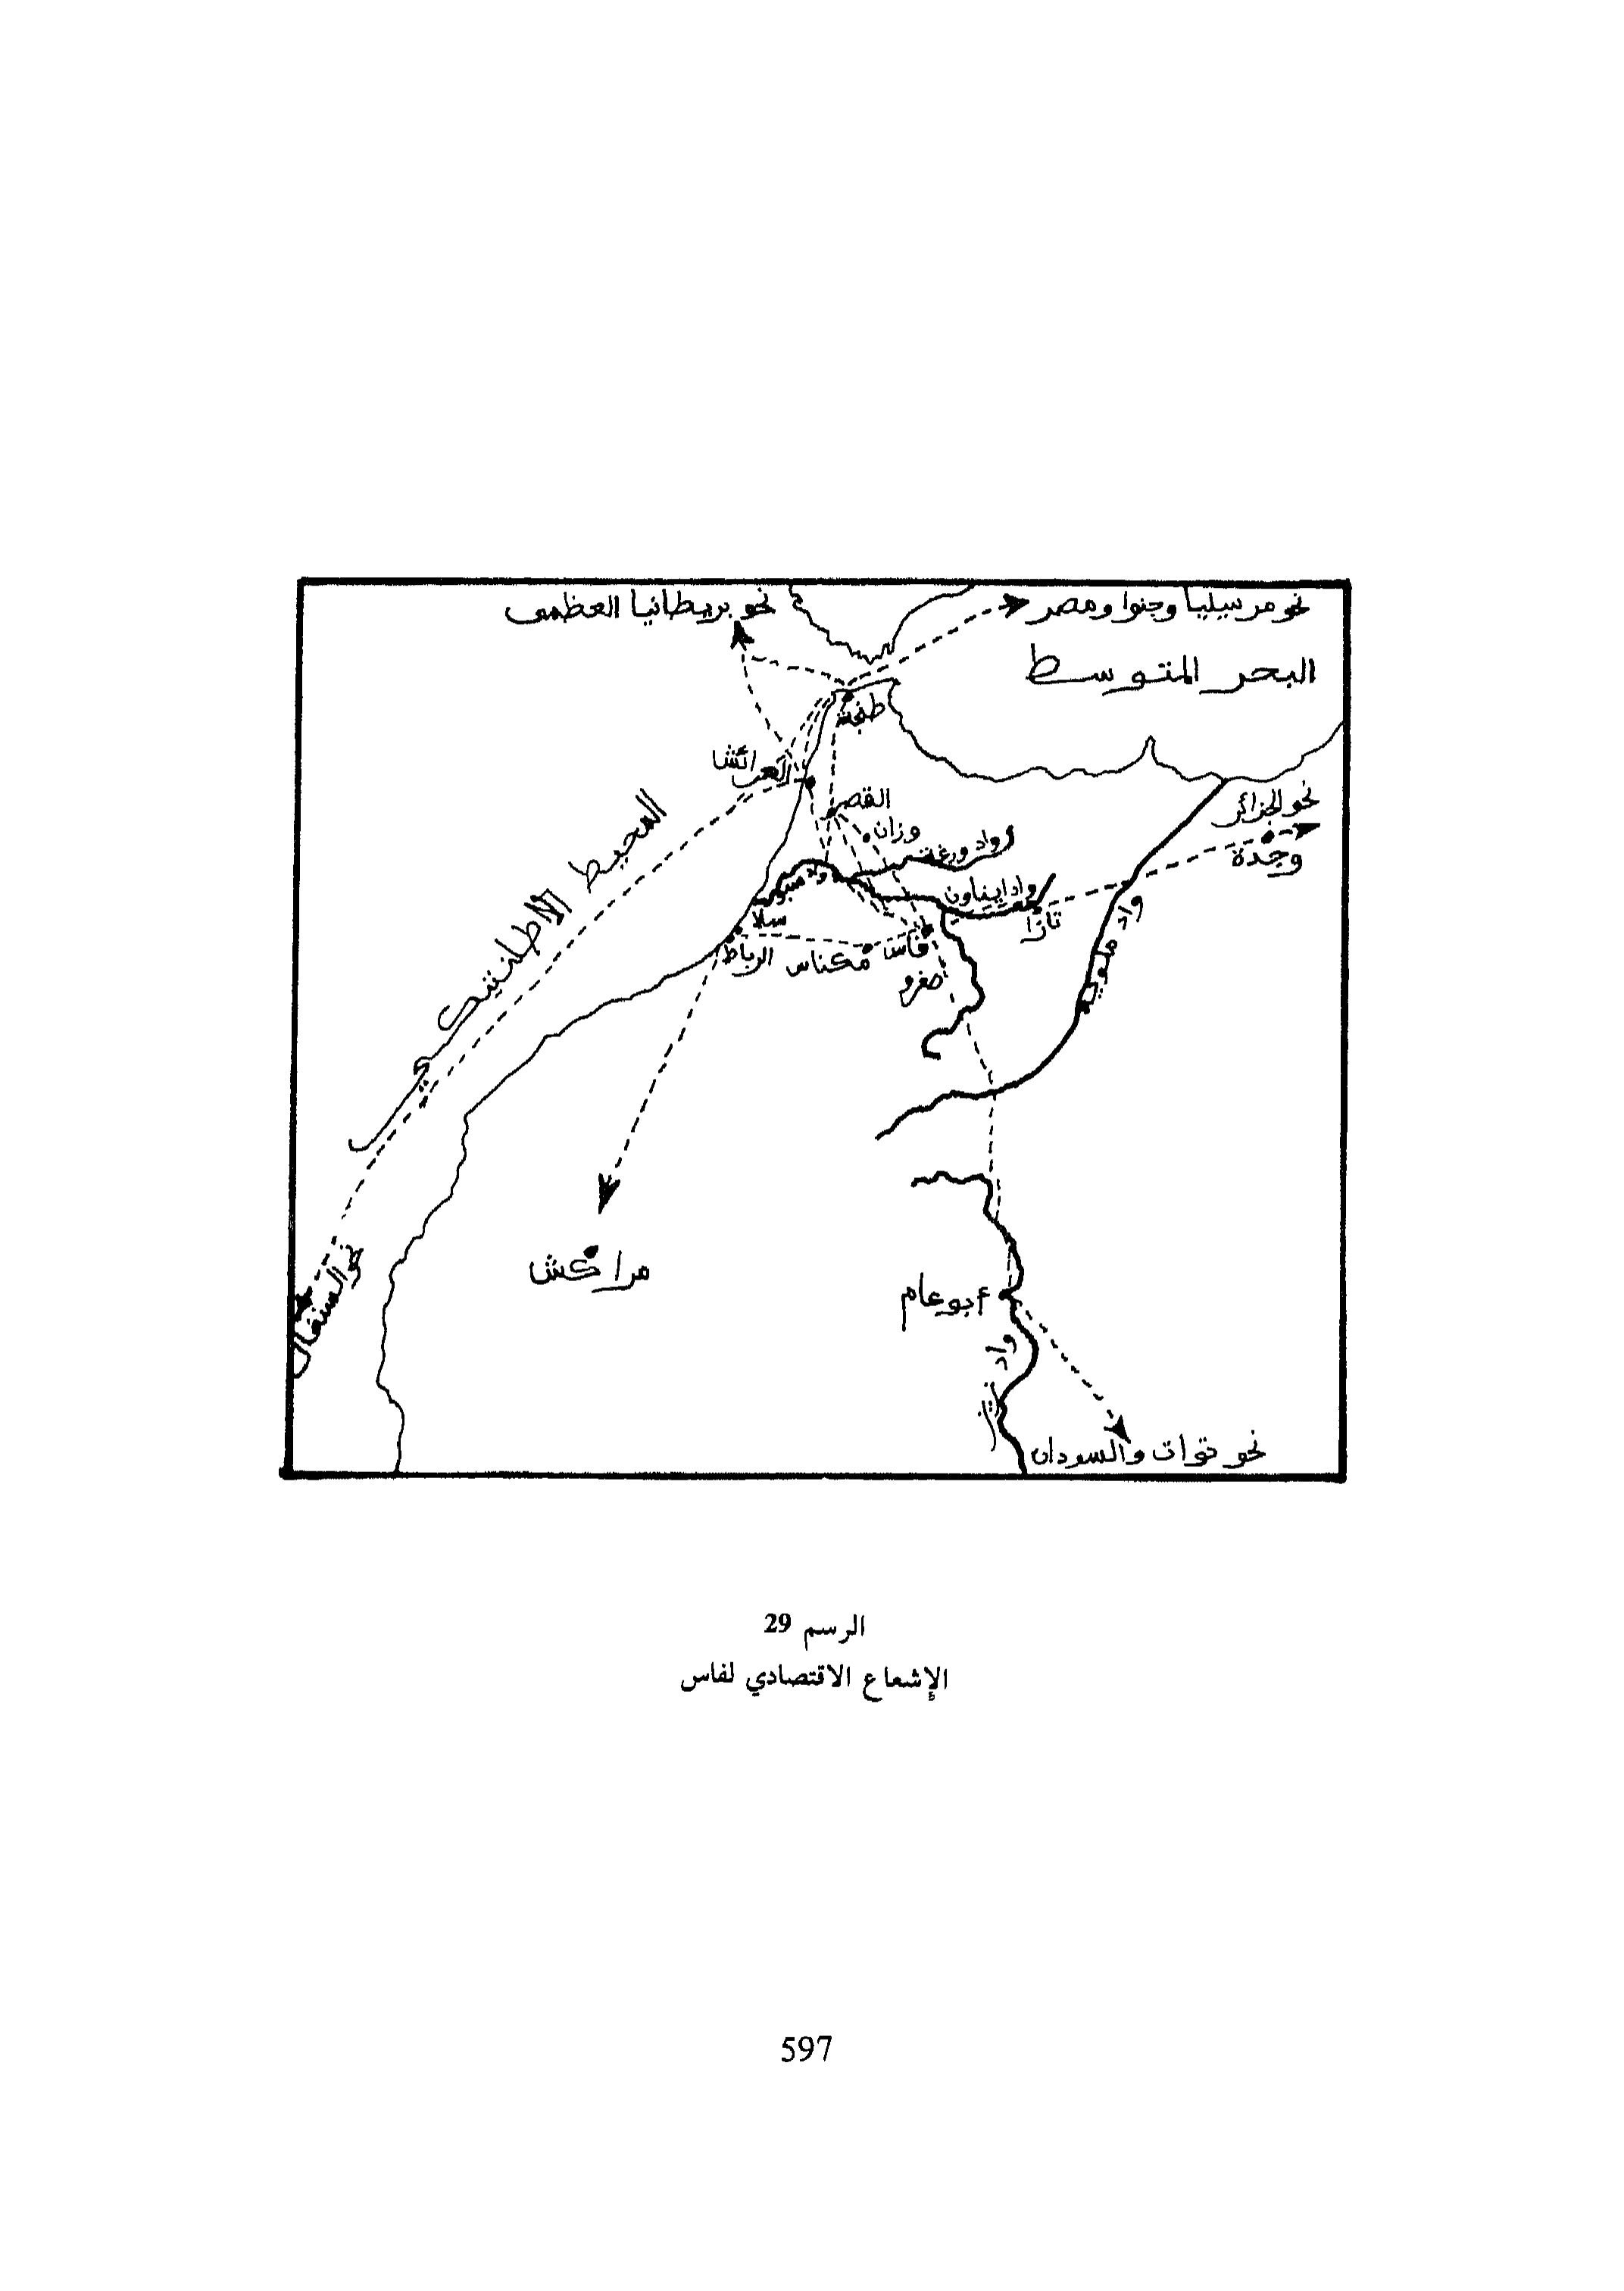 نحو بريطانيا العظمى
نحو مرسيليا وجنوا ومصر
البحر المتوسط
طنجة
العرائش
القصر
وزان
واد ورغة
نحو الجزائر
وجدة
واد سبو
واد ايناون
تازا
واد ملوية
سلا
الرباط
مكناس
فاس
صفرو
المحيط الأطلنتيكي
مراكش
نحو السنغال
أبو عام
واد
نحو توات والسودان
الرسم 29
الإشعاع الاقتصادي لفاس
597